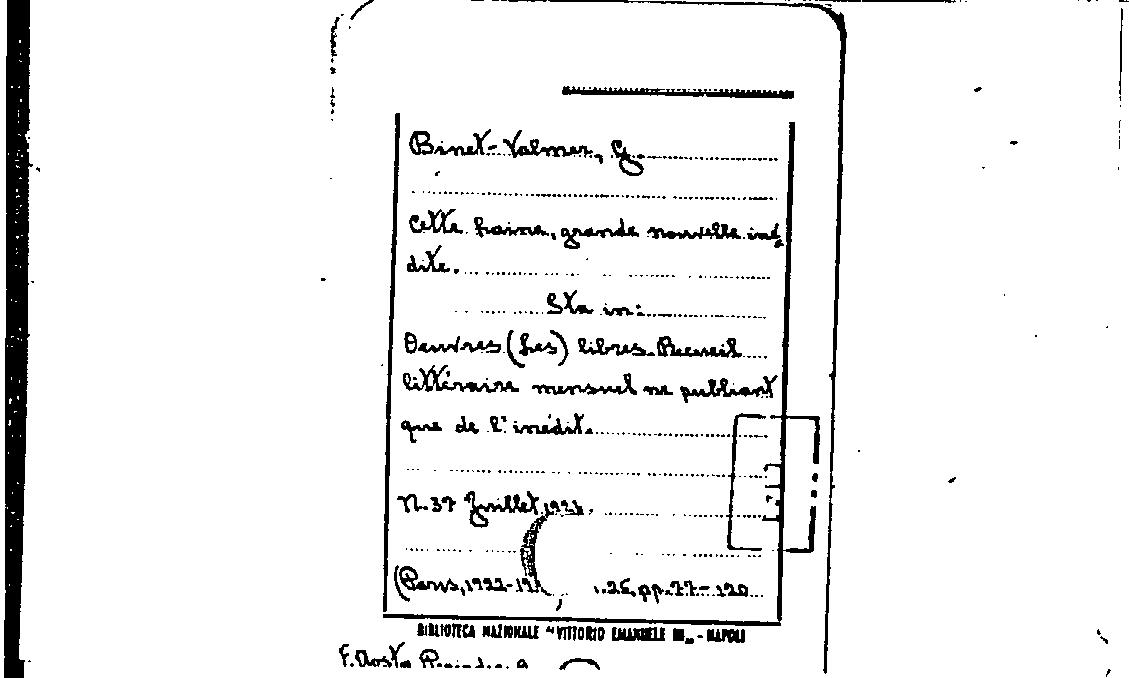 Binet-Valmer, G.
Cette haine, grande nouvelle iné-
dite.
Sta in:
Oeuvres (Les) libres. Recueil
littéraire mensuel ne publiant
que de l'inédit.
N. 37 Juillet
(Paris, 1922-19 pp. 77-120
BIBLIOTECA NAZIONALE "VITTORIO EMANUELE III" - NAPOLI